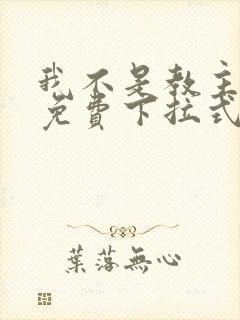 我不是教主
免費下拉式
葉落無心